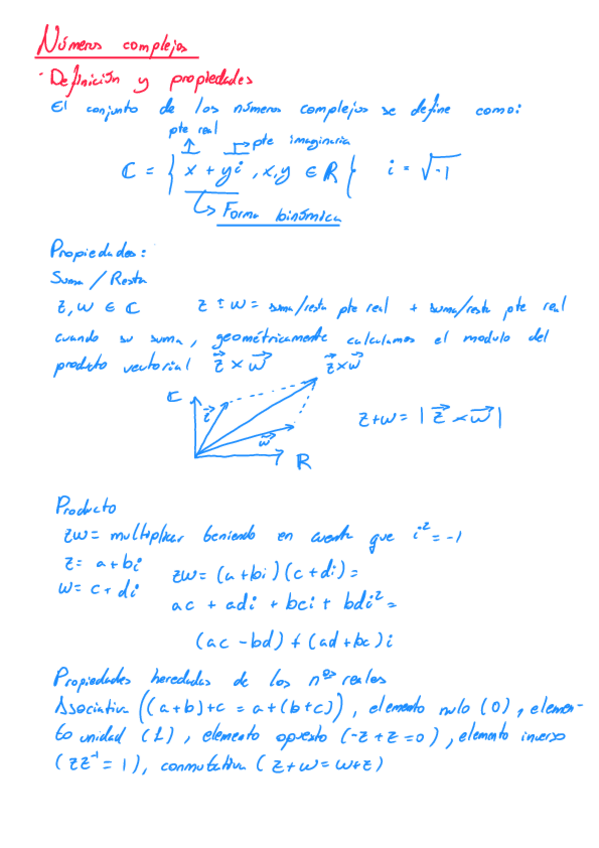 Números complejos
· Definición y propiedades
El conjunto de los números complejos se define como:
pte real
pte imaginaria
ℂ = { x + yi , x,y ∈ ℝ } i = √-1
↳ Forma binómica
Propiedades:
Suma / Resta
z, w ∈ ℂ z ± w = suma/resta pte real + suma/resta pte real
cuando su suma, geométricamente calculamos el modulo del
producto vectorial z⃗ × w⃗
z⃗ × w⃗
ℂ
z⃗
w⃗
ℝ
z+w = | z⃗ × w⃗ |
Producto
zw = multiplicar teniendo en cuenta que i² = -1
z = a + bi
w = c + di
zw = (a + bi)(c + di) =
ac + adi + bci + bdi² =
(ac - bd) + (ad + bc)i
Propiedades heredadas de los nºs reales
Asociativa ((a+b)+c = a+(b+c)), elemento nulo (0), elemen-
to unidad (1), elemento opuesto (-z+z=0), elemento inverso
(zz⁻¹ = 1), conmutativa (z+w=w+z)